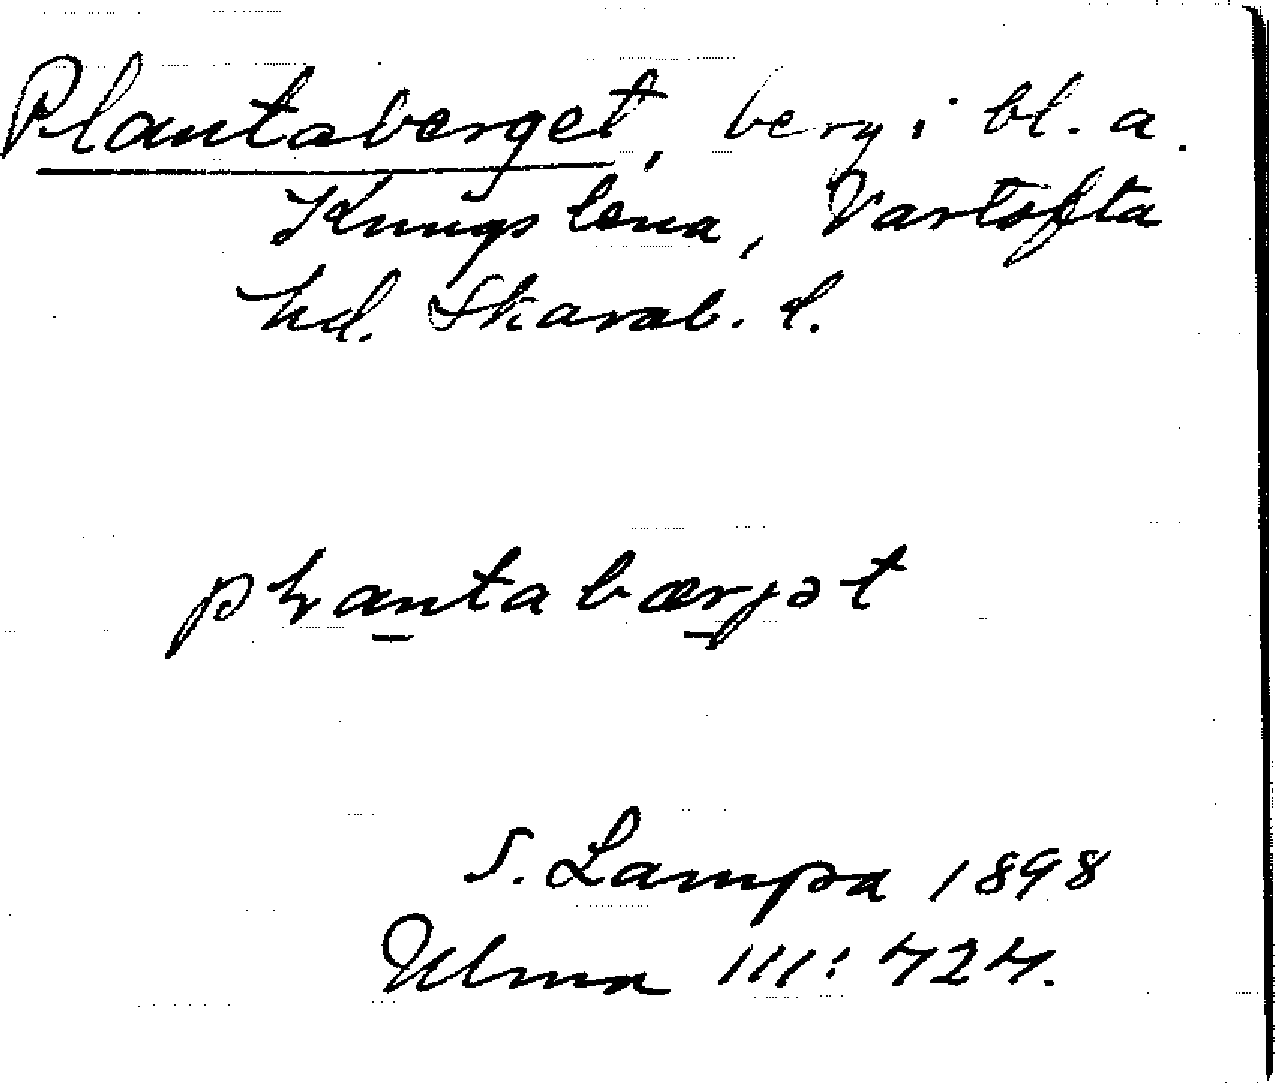 Plantaberget, berg i bl. a.
Kungslena, Vartofta
hd. Skarab. l.
plantabærjət
S. Lampa 1898
Ulma 111: 424.